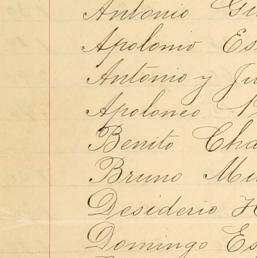 Antonio
Apolonio Es
Antonio y Ju
Apolonio
Benito Cha
Bruno Mi
Desiderio H
Domingo Es